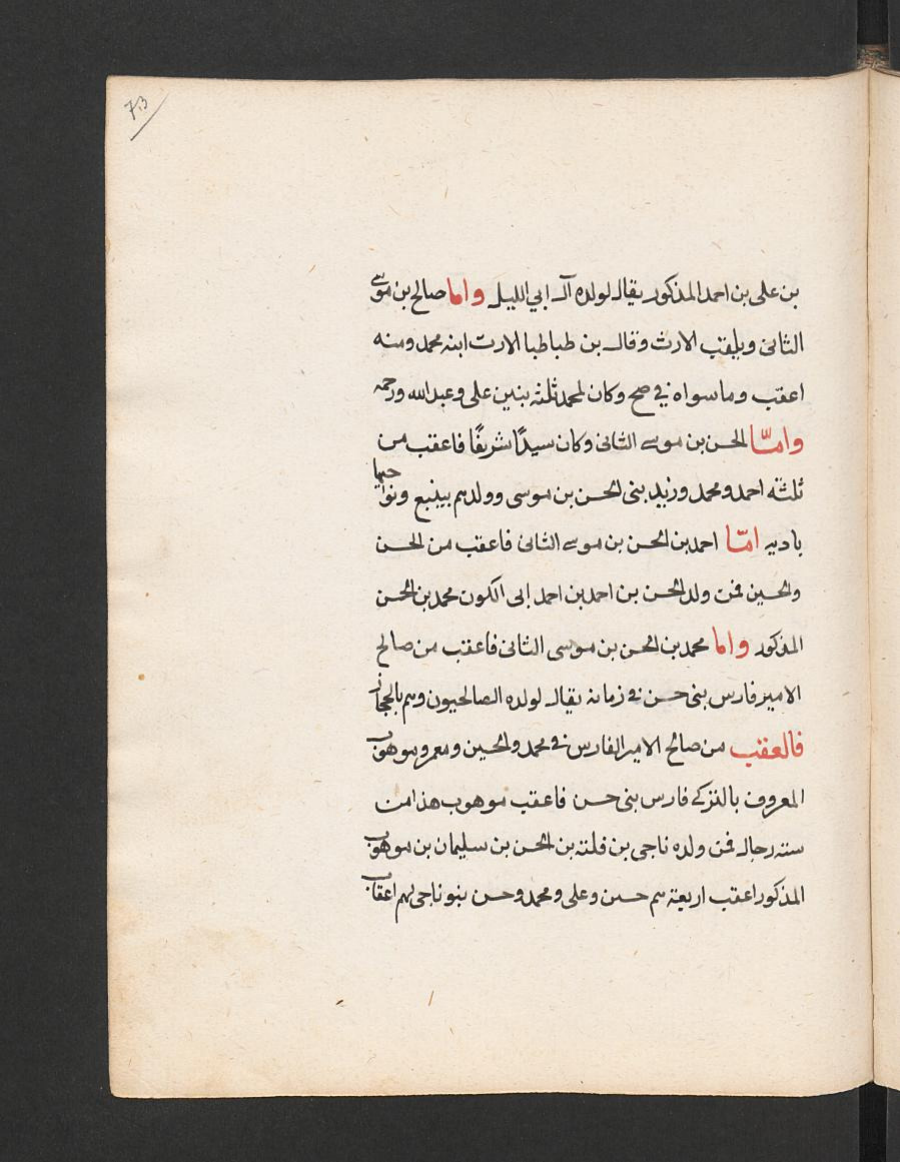 73
بن على بن احمد المذكور يقال لولده آل ابي الليل واما صالح بن موسى
الثانى ويلقب الارث وقال بن طباطبا الارت ابنه محمد ومنه
اعقب وما سواه في صح وكان لمحمد ثلثه بنين على وعبد الله ورحمه
وامّا الحسن بن موسى الثانى وكان سيدًا شريفًا فاعقب من
ثلثه احمد ومحمد وزيد بنى الحسن بن موسى وولدهم بينبع ونواحيها
باديه امّا احمد بن الحسن بن موسى الثانى فاعقب من الحسن
والحسين فمن ولد الحسن بن احمد بن احمد ابى الكون محمد بن الحسن
المذكور واما محمد بن الحسن بن موسى الثانى فاعقب من صالح
الامير فارس بنى حسن فى زمانه يقال لولده الصالحيون وهم بالحجاز
فالعقب من صالح الامير الفارس فى محمد والحسين ومعمر وموهوب
المعروف بالتركى فارس بنى حسن فاعقب موهوب هذا من
سته رجال فمن ولده ناجى بن فلته بن الحسن بن سليمان بن موهوب
المذكور اعقب اربعة هم حسين وعلى ومحمد وحسن بنو ناجى لهم اعقاب